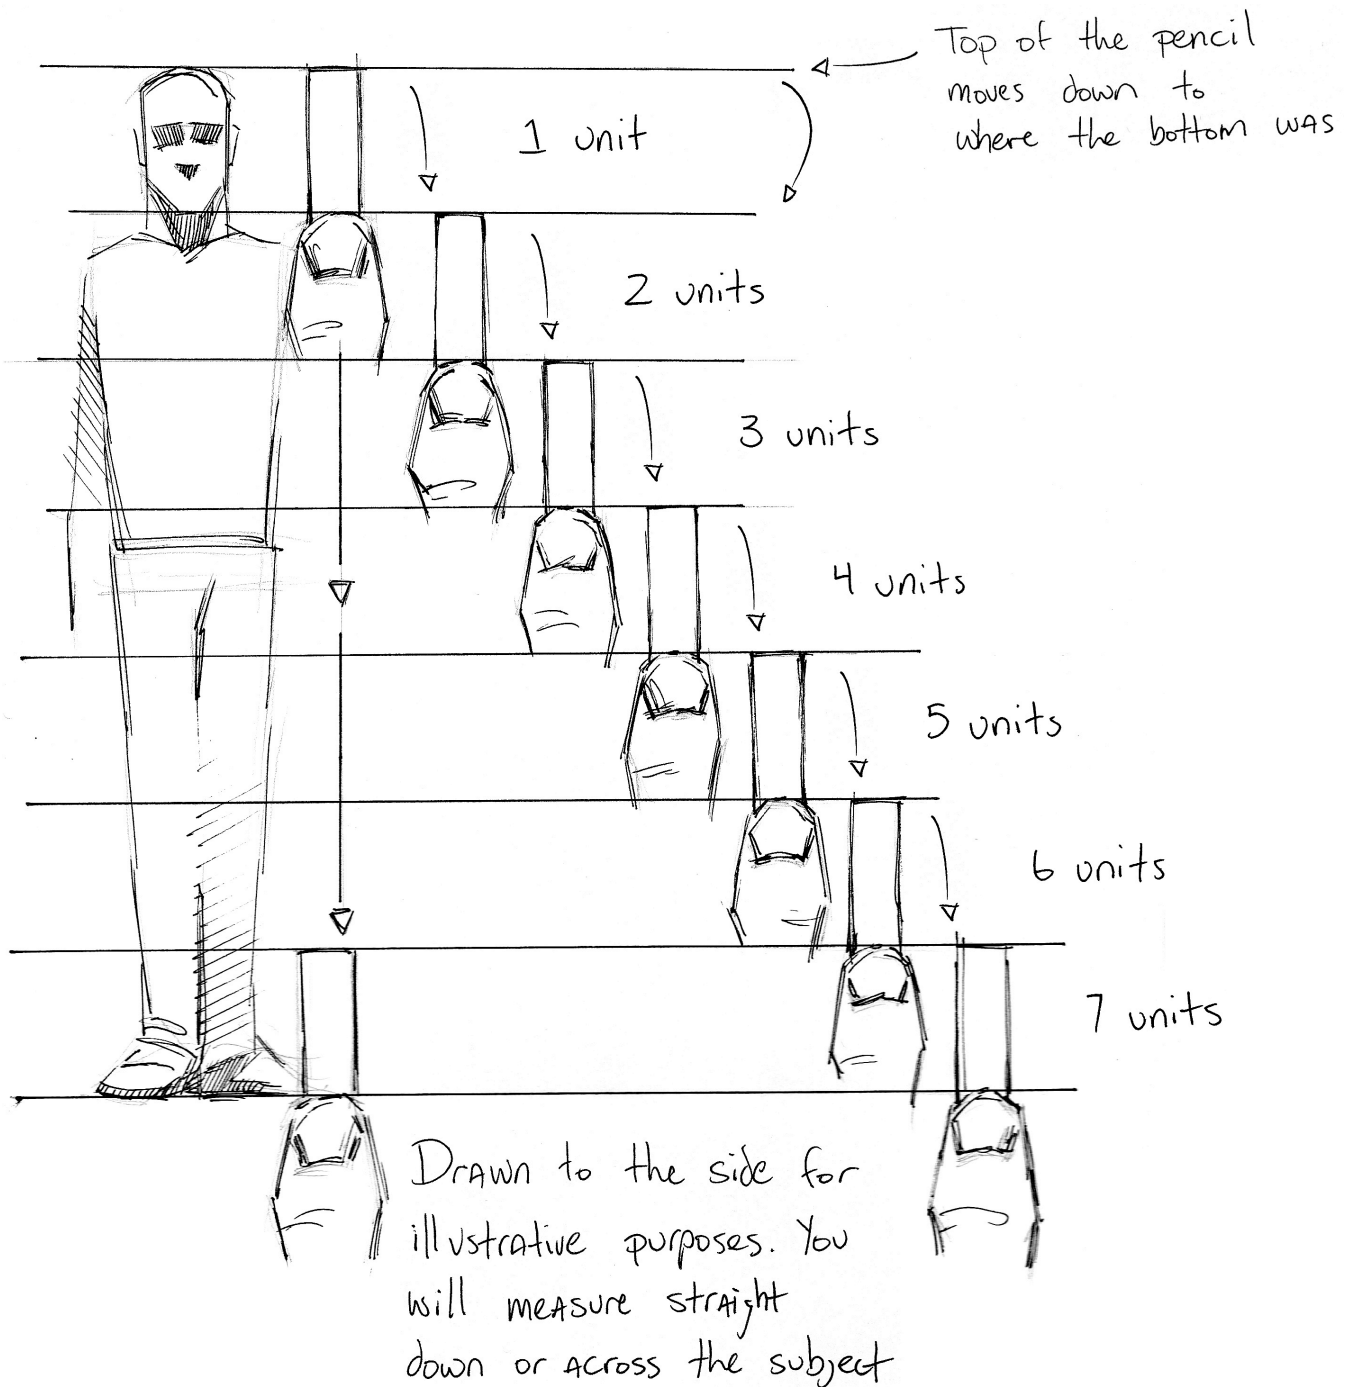 Top of the pencil
moves down to
where the bottom was
1 unit
2 units
3 units
4 units
5 units
6 units
7 units
Drawn to the side for
illustrative purposes. You
will measure straight
down or across the subject